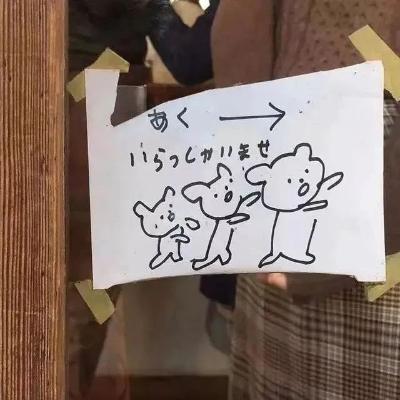 あく →
いらっしかいませ